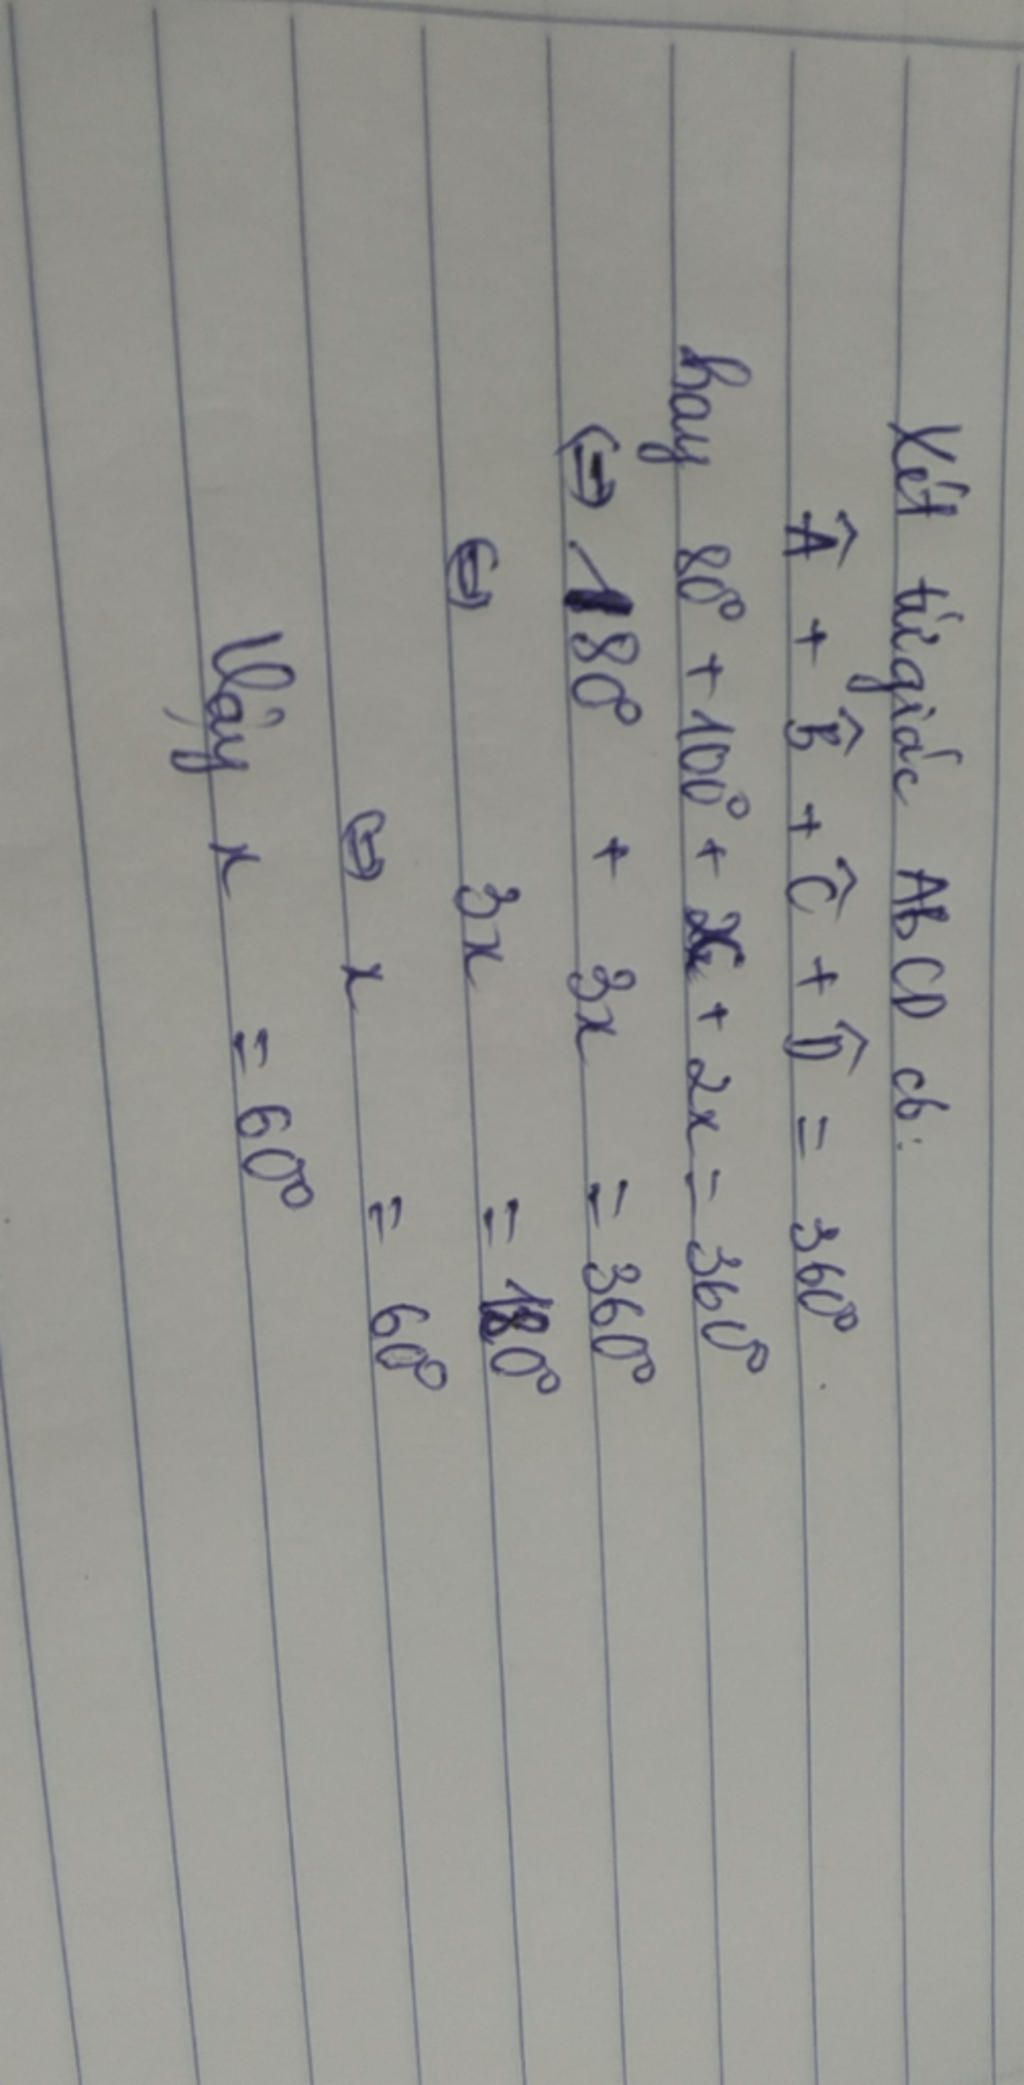 Xét tứ giác ABCD có:
Â + B̂ + Ĉ + D̂ = 360°
hay 80° + 100° + x + 2x = 360°
⇔ 180° + 3x = 360°
⇔ 3x = 180°
⇔ x = 60°
Vậy x = 60°